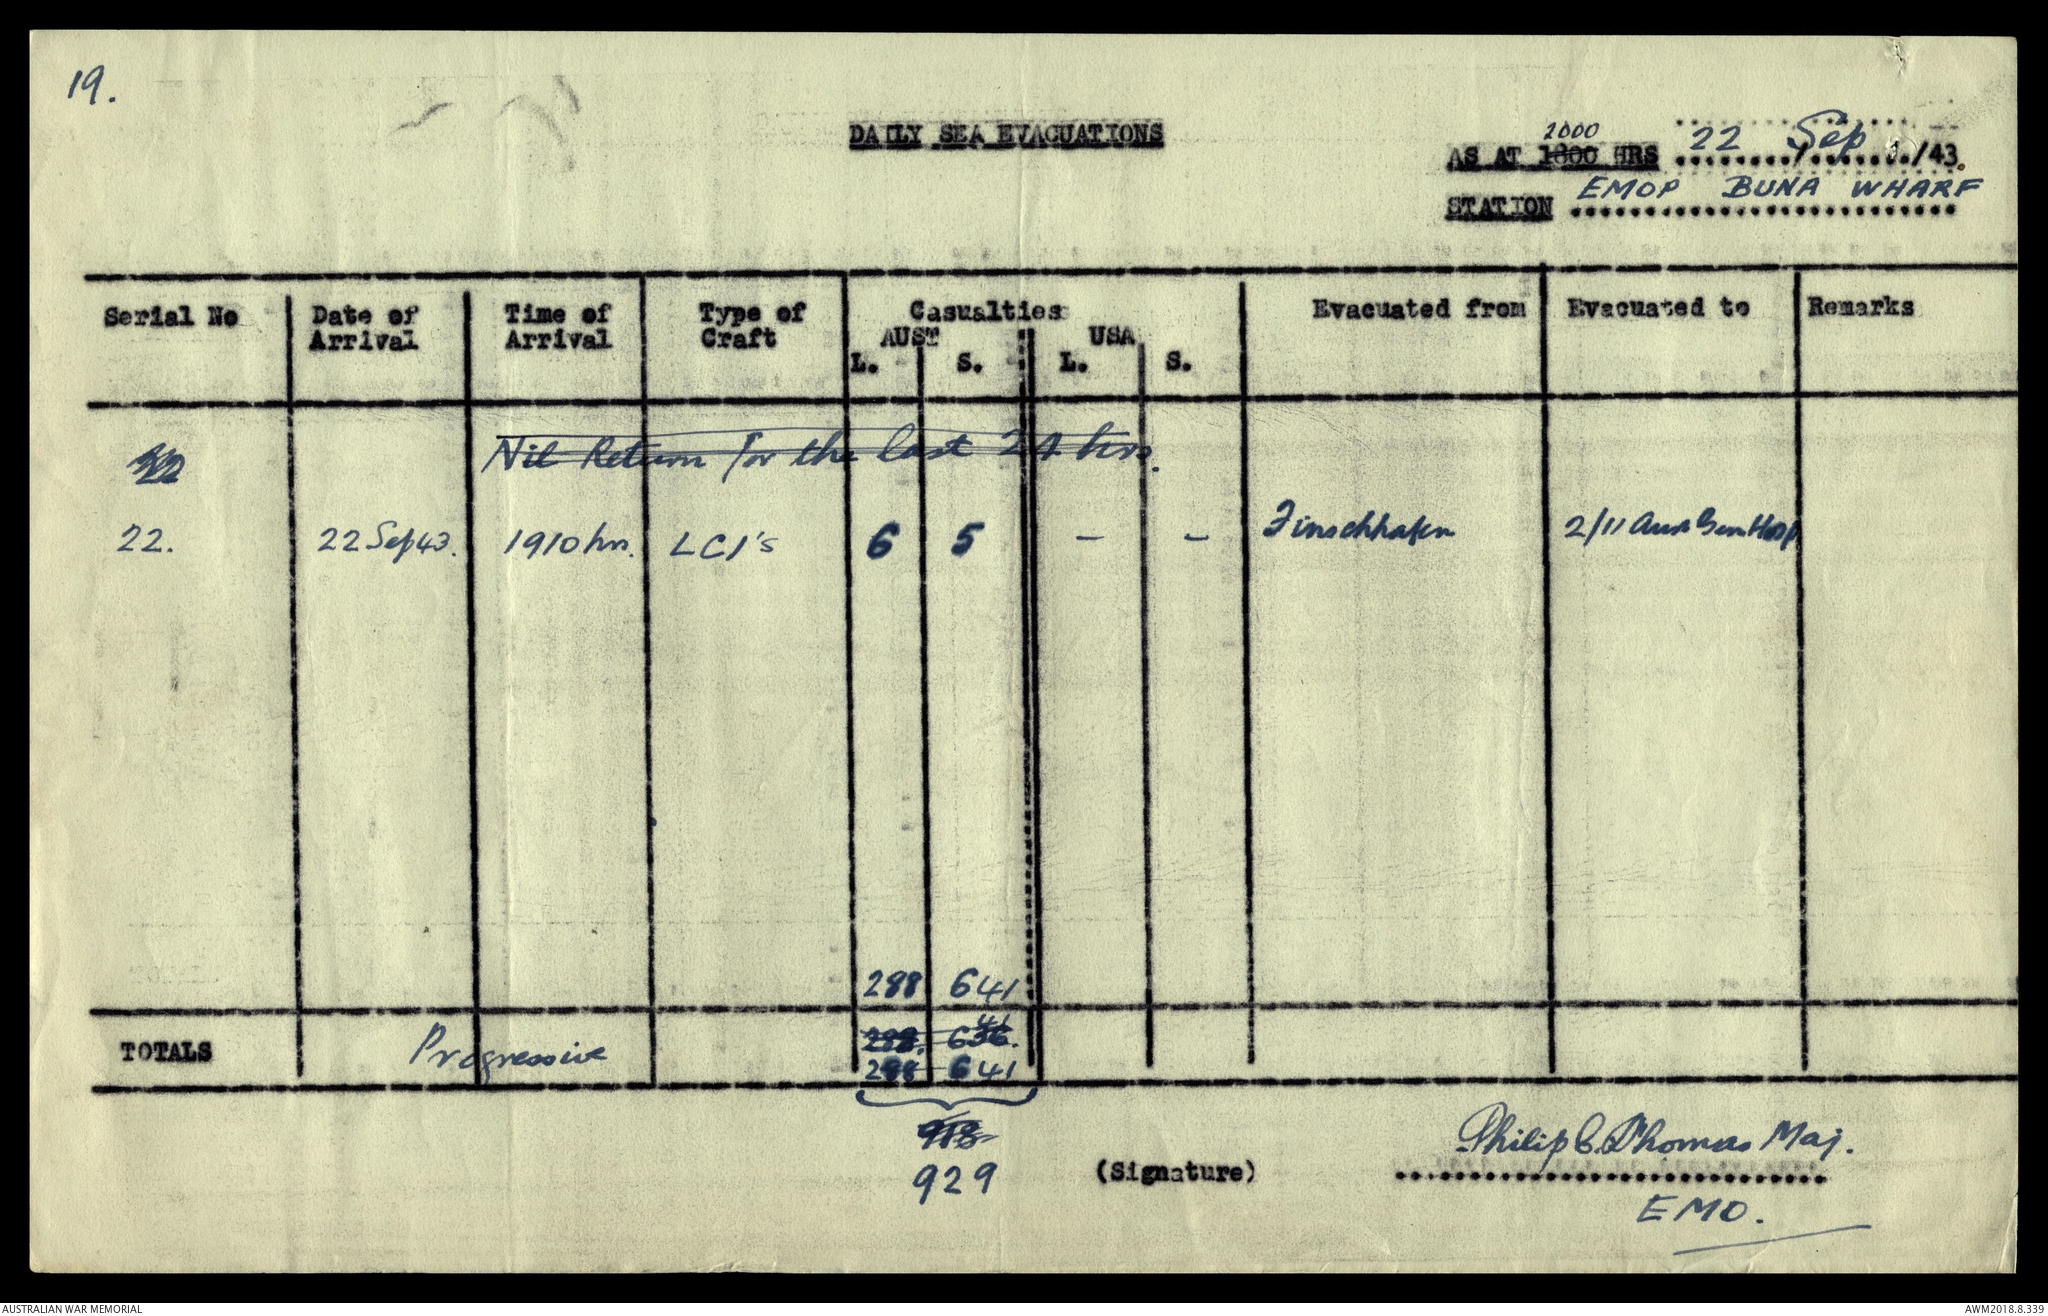 19.
DAILY SEA EVACUATIONS
2000
AS AT 1800 HRS 22 / Sep /43.
STATION EMOP BUNA WHARF
Serial No Date of Arrival Time of Arrival Type of Craft Casualties Evacuated from Evacuated to Remarks
AUST USA
L. S. L. S.
22 Nil Return for the last 24 hrs.
22. 22 Sep 43. 1910 hrs. LCI's 6 5 - - Finschhafen 2/11 Aust Gen Hosp
288 641
41
TOTALS Progressive 636.
288 641
918
929
(Signature) Philip C. Thomas Maj.
EMO.
AUSTRALIAN WAR MEMORIAL AWM2018.8.339